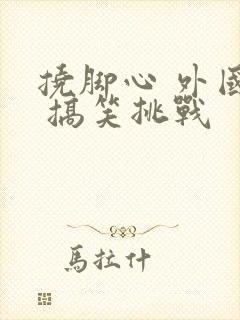 撓脚心 外國
搞笑挑戰
馬拉什